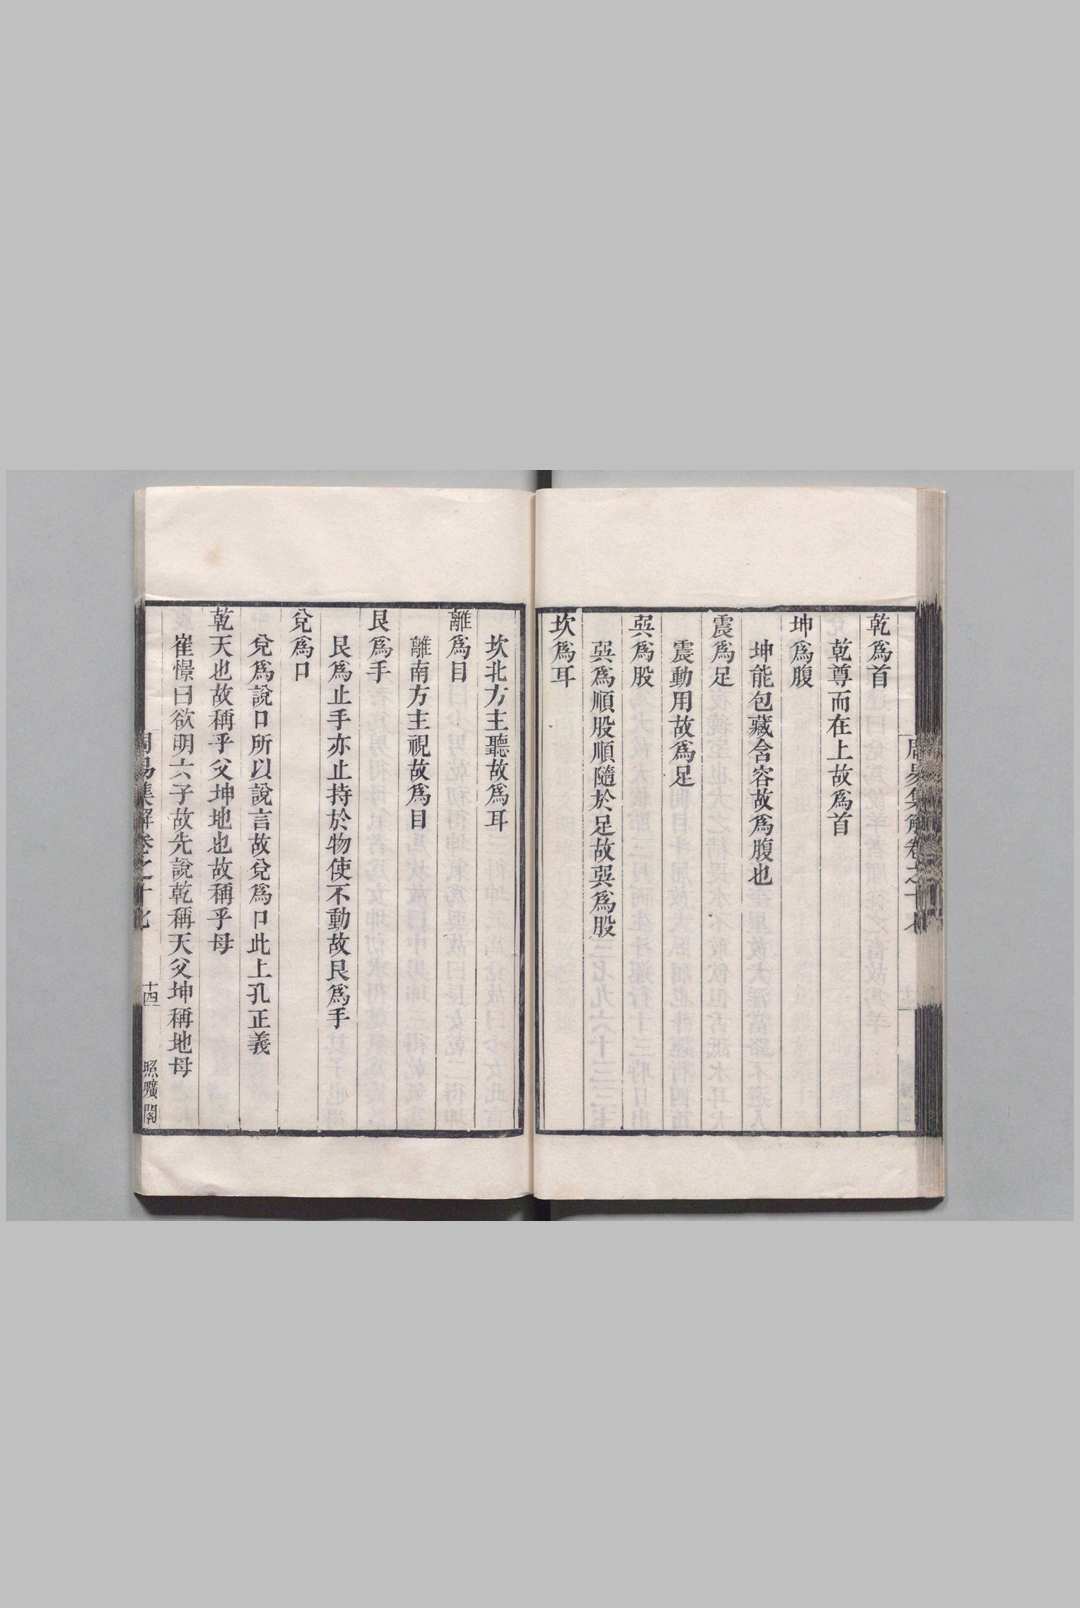 周易集解卷之十七
乾爲首
乾尊而在上故爲首
坤爲腹
坤能包藏含容故爲腹也
震爲足
震動用故爲足
巽爲股
巽爲順股順隨於足故巽爲股
坎爲耳
坎北方主聽故爲耳
離爲目
離南方主視故爲目
艮爲手
艮爲止手亦止持於物使不動故艮爲手
兌爲口
兌爲說口所以說言故兌爲口此上孔正義
乾天也故稱乎父坤地也故稱乎母
崔憬曰欲明六子故先說乾稱天父坤稱地母
周易集解卷之十七
十四
照曠閣